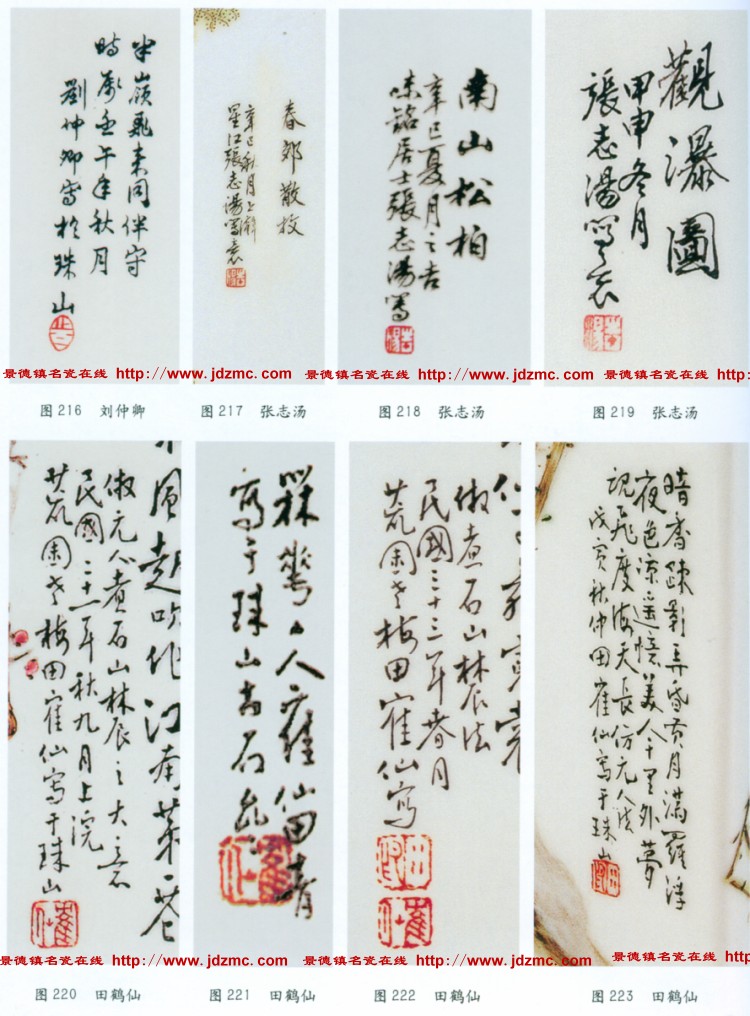 半嶺飛来同伴守
時屬壬午年秋月
劉仲卿寫於珠山
春郊散牧
辛巳秋月上澣
星江張志湯寫意
南山松柏
辛巳夏月之吉
味銘居士張志湯寫
觀瀑圖
甲申冬月
張志湯寫意
景德镇名瓷在线 http://www.jdzmc.com
景德镇名瓷在线 http://www.jdzmc.com
景德镇名瓷在线 http://www.jdzmc.com
图216 刘仲卿
图217 张志汤
图218 张志汤
图219 张志汤
風起吹作江南第一花
倣元人煮石山林辰之大意
民國二十一年秋九月上浣
荒園老梅田寉仙寫于珠山
人寉仙田青
寫于珠山古石
倣煮石山林辰法
民國三十三年春月
荒園老梅田寉仙寫
暗香疎影弄昏黄月滿羅浮
夜色凉遥憶美人千里外夢
魂飛度海天長仿元人法
戊寅秋仲田寉仙寫于珠山
景德镇名瓷在线 http://www.jdzmc.com
景德镇名瓷在线 http://www.jdzmc.com
景德镇名瓷在线 http://www.jdzmc.com
图220 田鹤仙
图221 田鹤仙
图222 田鹤仙
图223 田鹤仙